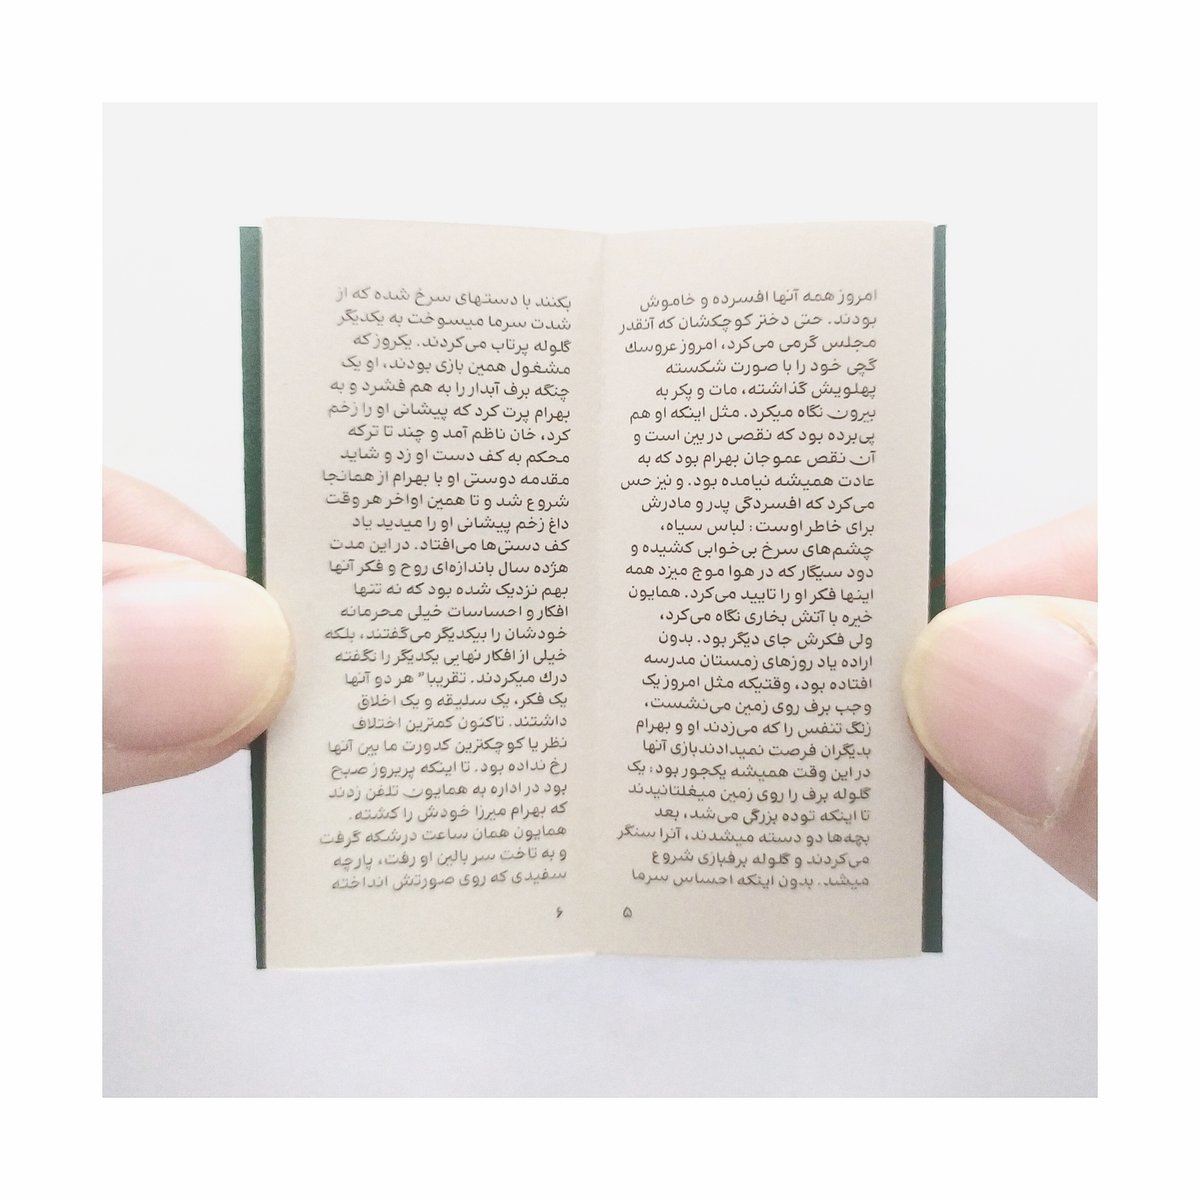 امروز همه آنها افسرده و خاموش
بودند. حتی دختر کوچکشان که آنقدر
مجلس گرمی می‌کرد، امروز عروسك
گچی خود را با صورت شکسته
پهلویش گذاشته، مات و پکر به
بیرون نگاه میکرد. مثل اینکه او هم
پی‌برده بود که نقصی در بین است و
آن نقص عموجان بهرام بود که به
عادت همیشه نیامده بود. و نیز حس
می‌کرد که افسردگی پدر و مادرش
برای خاطر اوست: لباس سیاه،
چشم‌های سرخ بی‌خوابی کشیده و
دود سیگار که در هوا موج میزد همه
اینها فکر او را تایید می‌کرد. همایون
خیره با آتش بخاری نگاه می‌کرد،
ولی فکرش جای دیگر بود. بدون
اراده یاد روزهای زمستان مدرسه
افتاده بود، وقتیکه مثل امروز یک
وجب برف روی زمین می‌نشست،
زنگ تنفس را که می‌زدند او و بهرام
بدیگران فرصت نمیدادندبازی آنها
در این وقت همیشه یکجور بود: یک
گلوله برف را روی زمین میغلتانیدند
تا اینکه توده بزرگی می‌شد، بعد
بچه‌ها دو دسته میشدند، آنرا سنگر
می‌کردند و گلوله برفبازی شروع
میشد. بدون اینکه احساس سرما
۵
بکنند با دستهای سرخ شده که از
شدت سرما میسوخت به یکدیگر
گلوله پرتاب می‌کردند. یکروز که
مشغول همین بازی بودند، او یک
چنگه برف آبدار را به هم فشرد و به
بهرام پرت کرد که پیشانی او را زخم
کرد، خان ناظم آمد و چند تا ترکه
محکم به کف دست او زد و شاید
مقدمه دوستی او با بهرام از همانجا
شروع شد و تا همین اواخر هر وقت
داغ زخم پیشانی او را میدید یاد
کف دستی‌ها می‌افتاد. در این مدت
هژده سال باندازه‌ای روح و فکر آنها
بهم نزدیک شده بود که نه تنها
افکار و احساسات خیلی محرمانه
خودشان را بیکدیگر می‌گفتند، بلکه
خیلی از افکار نهایی یکدیگر را نگفته
درك میکردند. تقریبا" هر دو آنها
یک فکر، یک سلیقه و یک اخلاق
داشتند. تاکنون کمترین اختلاف
نظر یا کوچکترین کدورت ما بین آنها
رخ نداده بود. تا اینکه پریروز صبح
بود در اداره به همایون تلفن زدند
که بهرام میرزا خودش را کشته.
همایون همان ساعت درشکه گرفت
و به تاخت سر بالین او رفت، پارچه
سفیدی که روی صورتش انداخته
۶